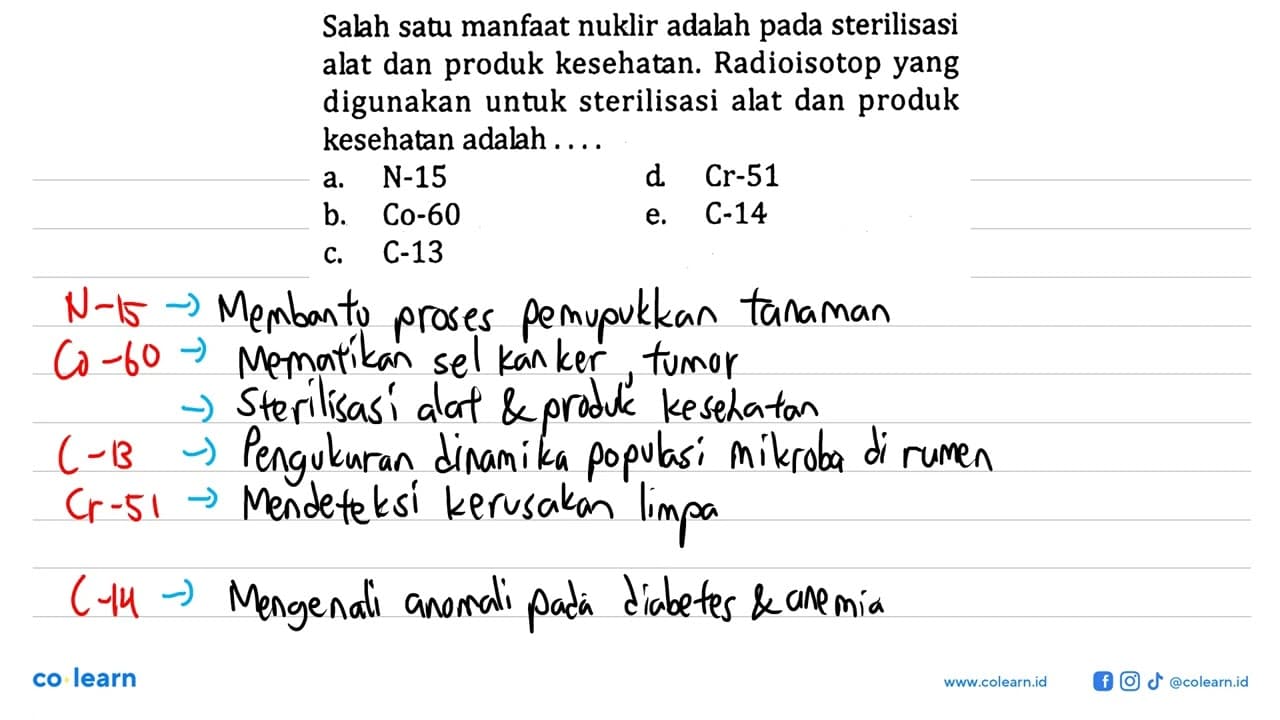 Salah satu manfaat nuklir adalah pada sterilisasi
alat dan produk kesehatan. Radioisotop yang
digunakan untuk sterilisasi alat dan produk
kesehatan adalah . . . .
a. N-15 d. Cr-51
b. Co-60 e. C-14
c. C-13
N-15 → Membantu proses pemupukkan tanaman
Co-60 → Mematikan sel kanker, tumor
→ Sterilisasi alat & produk kesehatan
C-13 → Pengukuran dinamika populasi mikroba di rumen
Cr-51 → Mendeteksi kerusakan limpa
C-14 → Mengenali anomali pada diabetes & anemia
co learn www.colearn.id @colearn.id